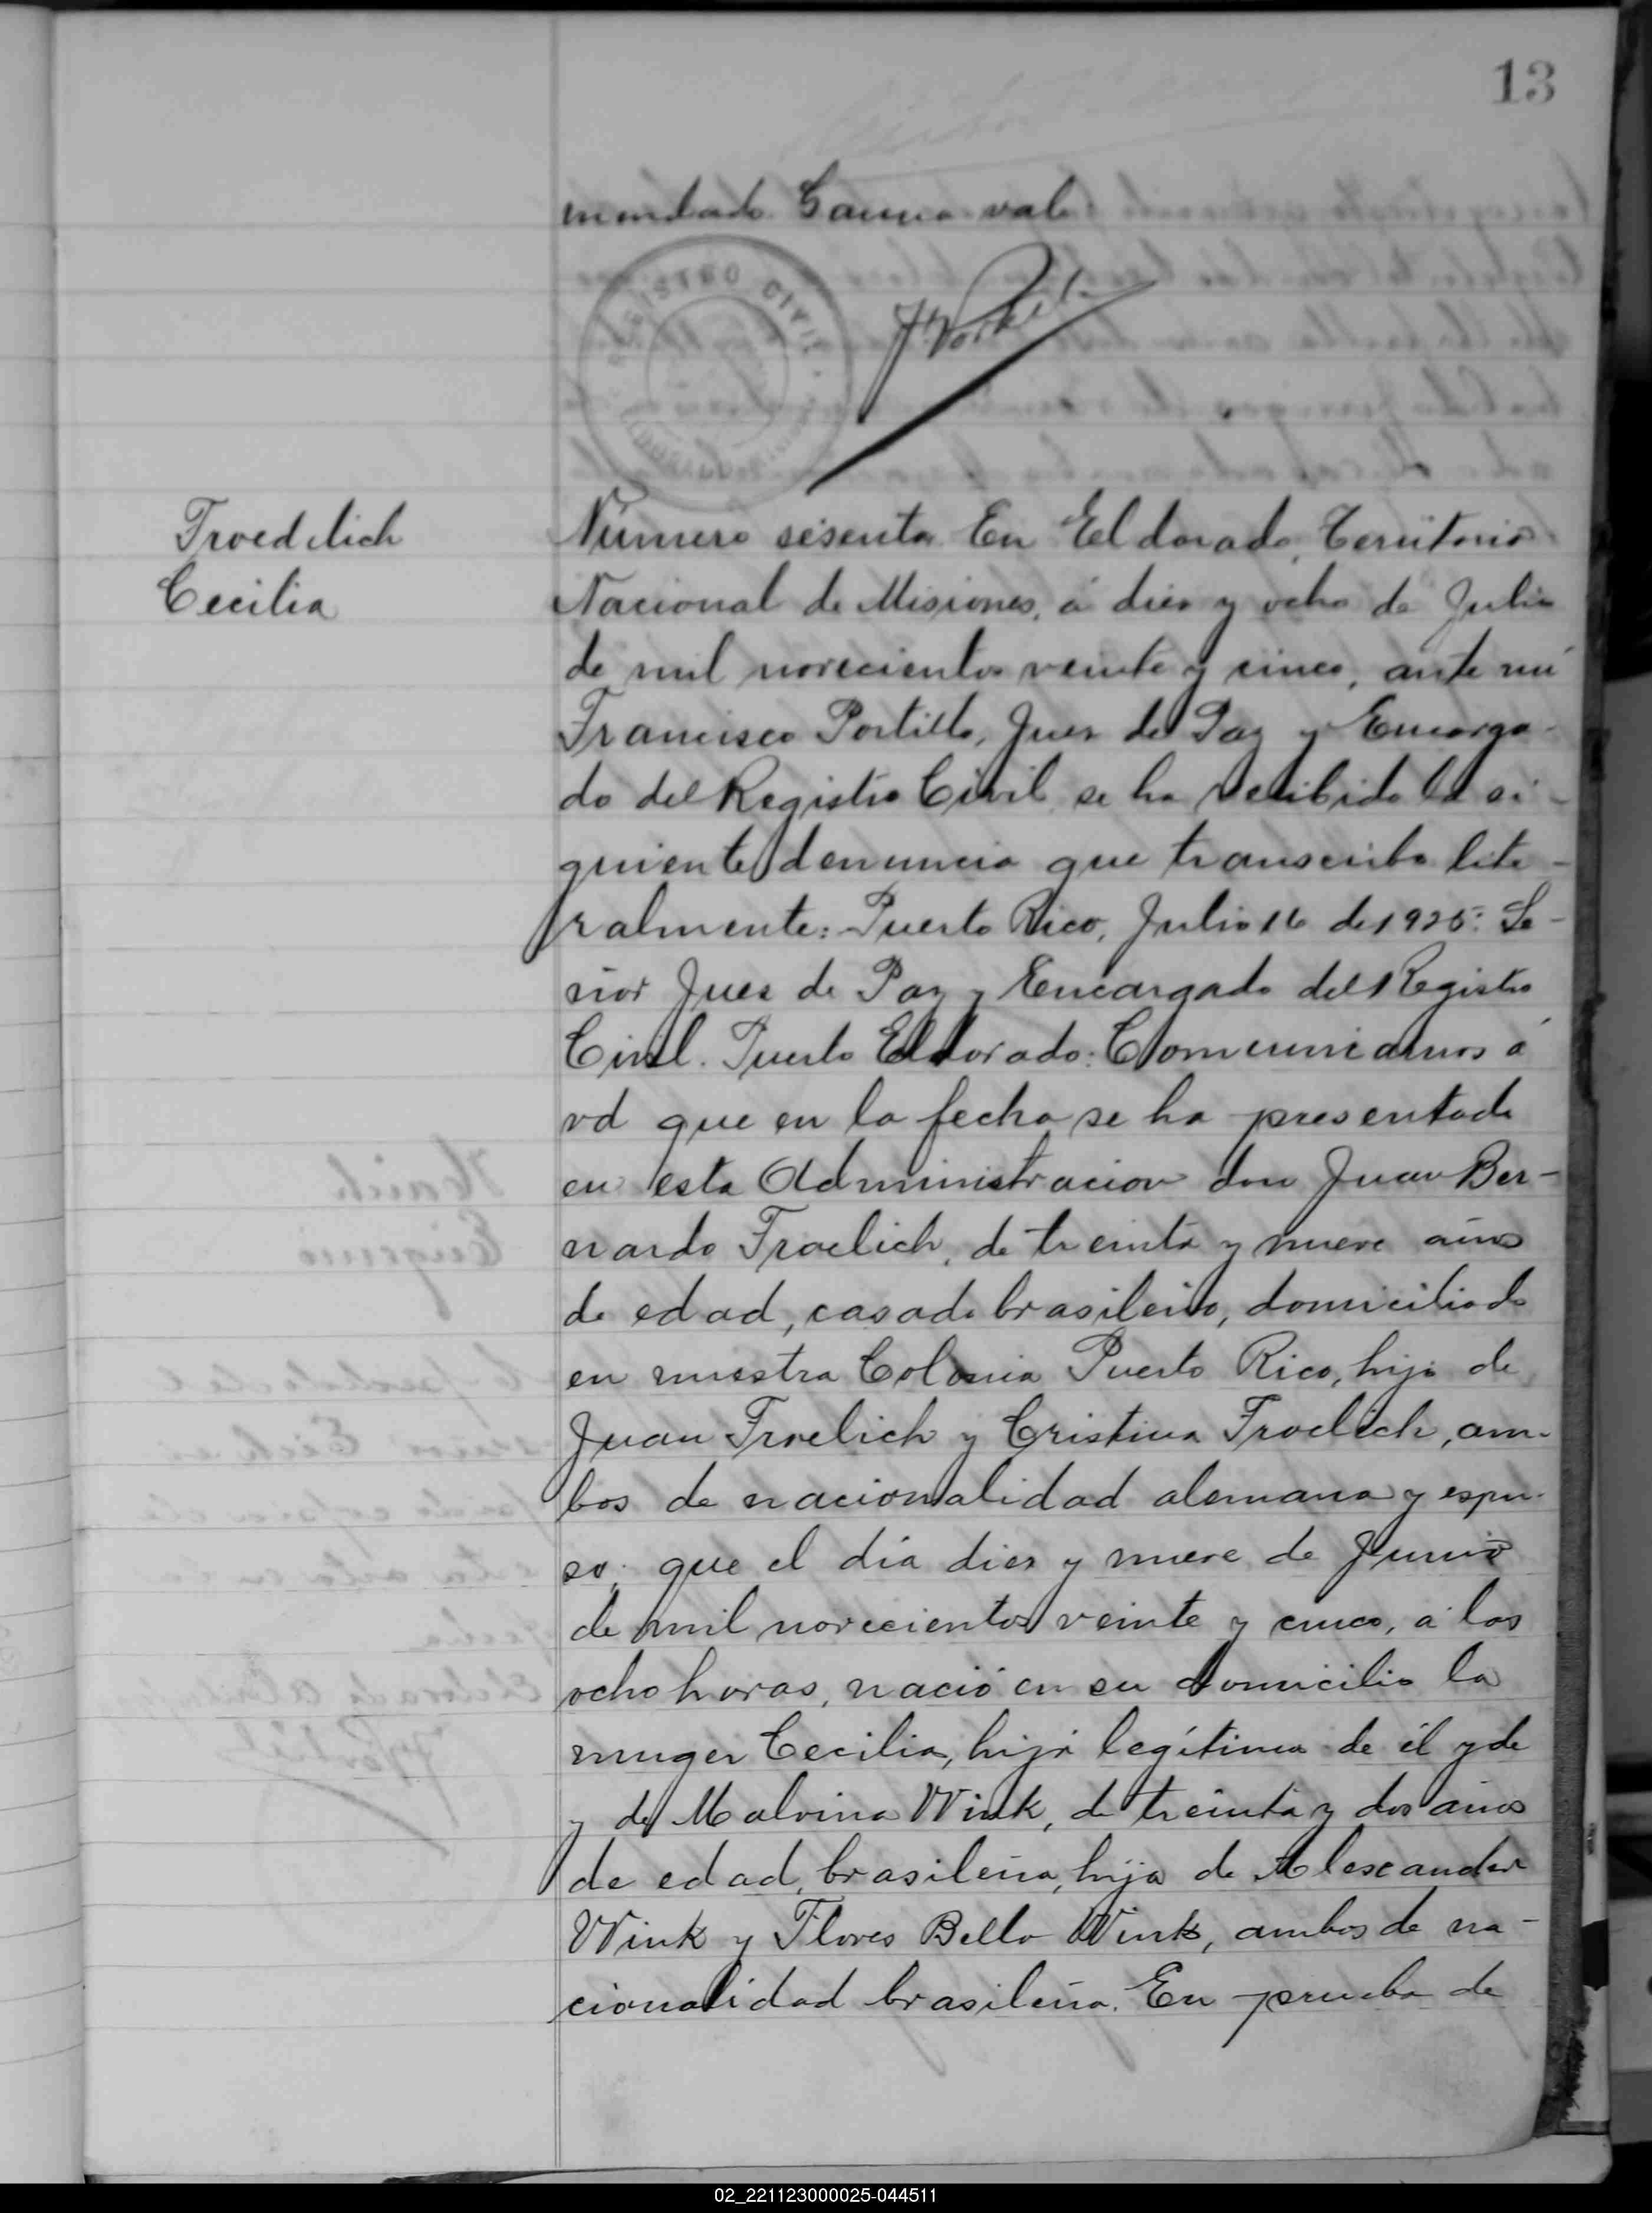 13
mendado Gauna vale
REGISTRO CIVIL
F. Portillo
Troedilich
Cecilia
Número sesenta. En Eldorado, Territorio
Nacional de Misiones, á diez y ocho de Julio
de mil novecientos veinte y cinco, ante mí
Francisco Portillo, Juez de Paz y Encarga-
do del Registro Civil, se ha recibido la si-
guiente denuncia que transcribo lite-
ralmente: Puerto Rico, Julio 16 de 1925: Se-
ñor Juez de Paz y Encargado del Registro
Civil. Puerto Eldorado: Comunicamos á
vd que en la fecha se ha presentado
en esta Administracion don Juan Ber-
nardo Froelich, de treinta y nueve años
de edad, casado brasileño, domiciliado
en nuestra Colonia Puerto Rico, hijo de
Juan Froelich y Cristina Froelich, am-
bos de nacionalidad alemana y espu-
so: que el día diez y nueve de Junio
de mil novecientos veinte y cinco, á las
ocho horas, nació en su domicilio la
muger Cecilia, hija legítima de él y de
y de Malvina Wink, de treinta y dos años
de edad, brasileña, hija de Alexander
Wink y Flores Bello Wink, ambos de na-
cionalidad brasileña. En prueba de
02_221123000025-044511